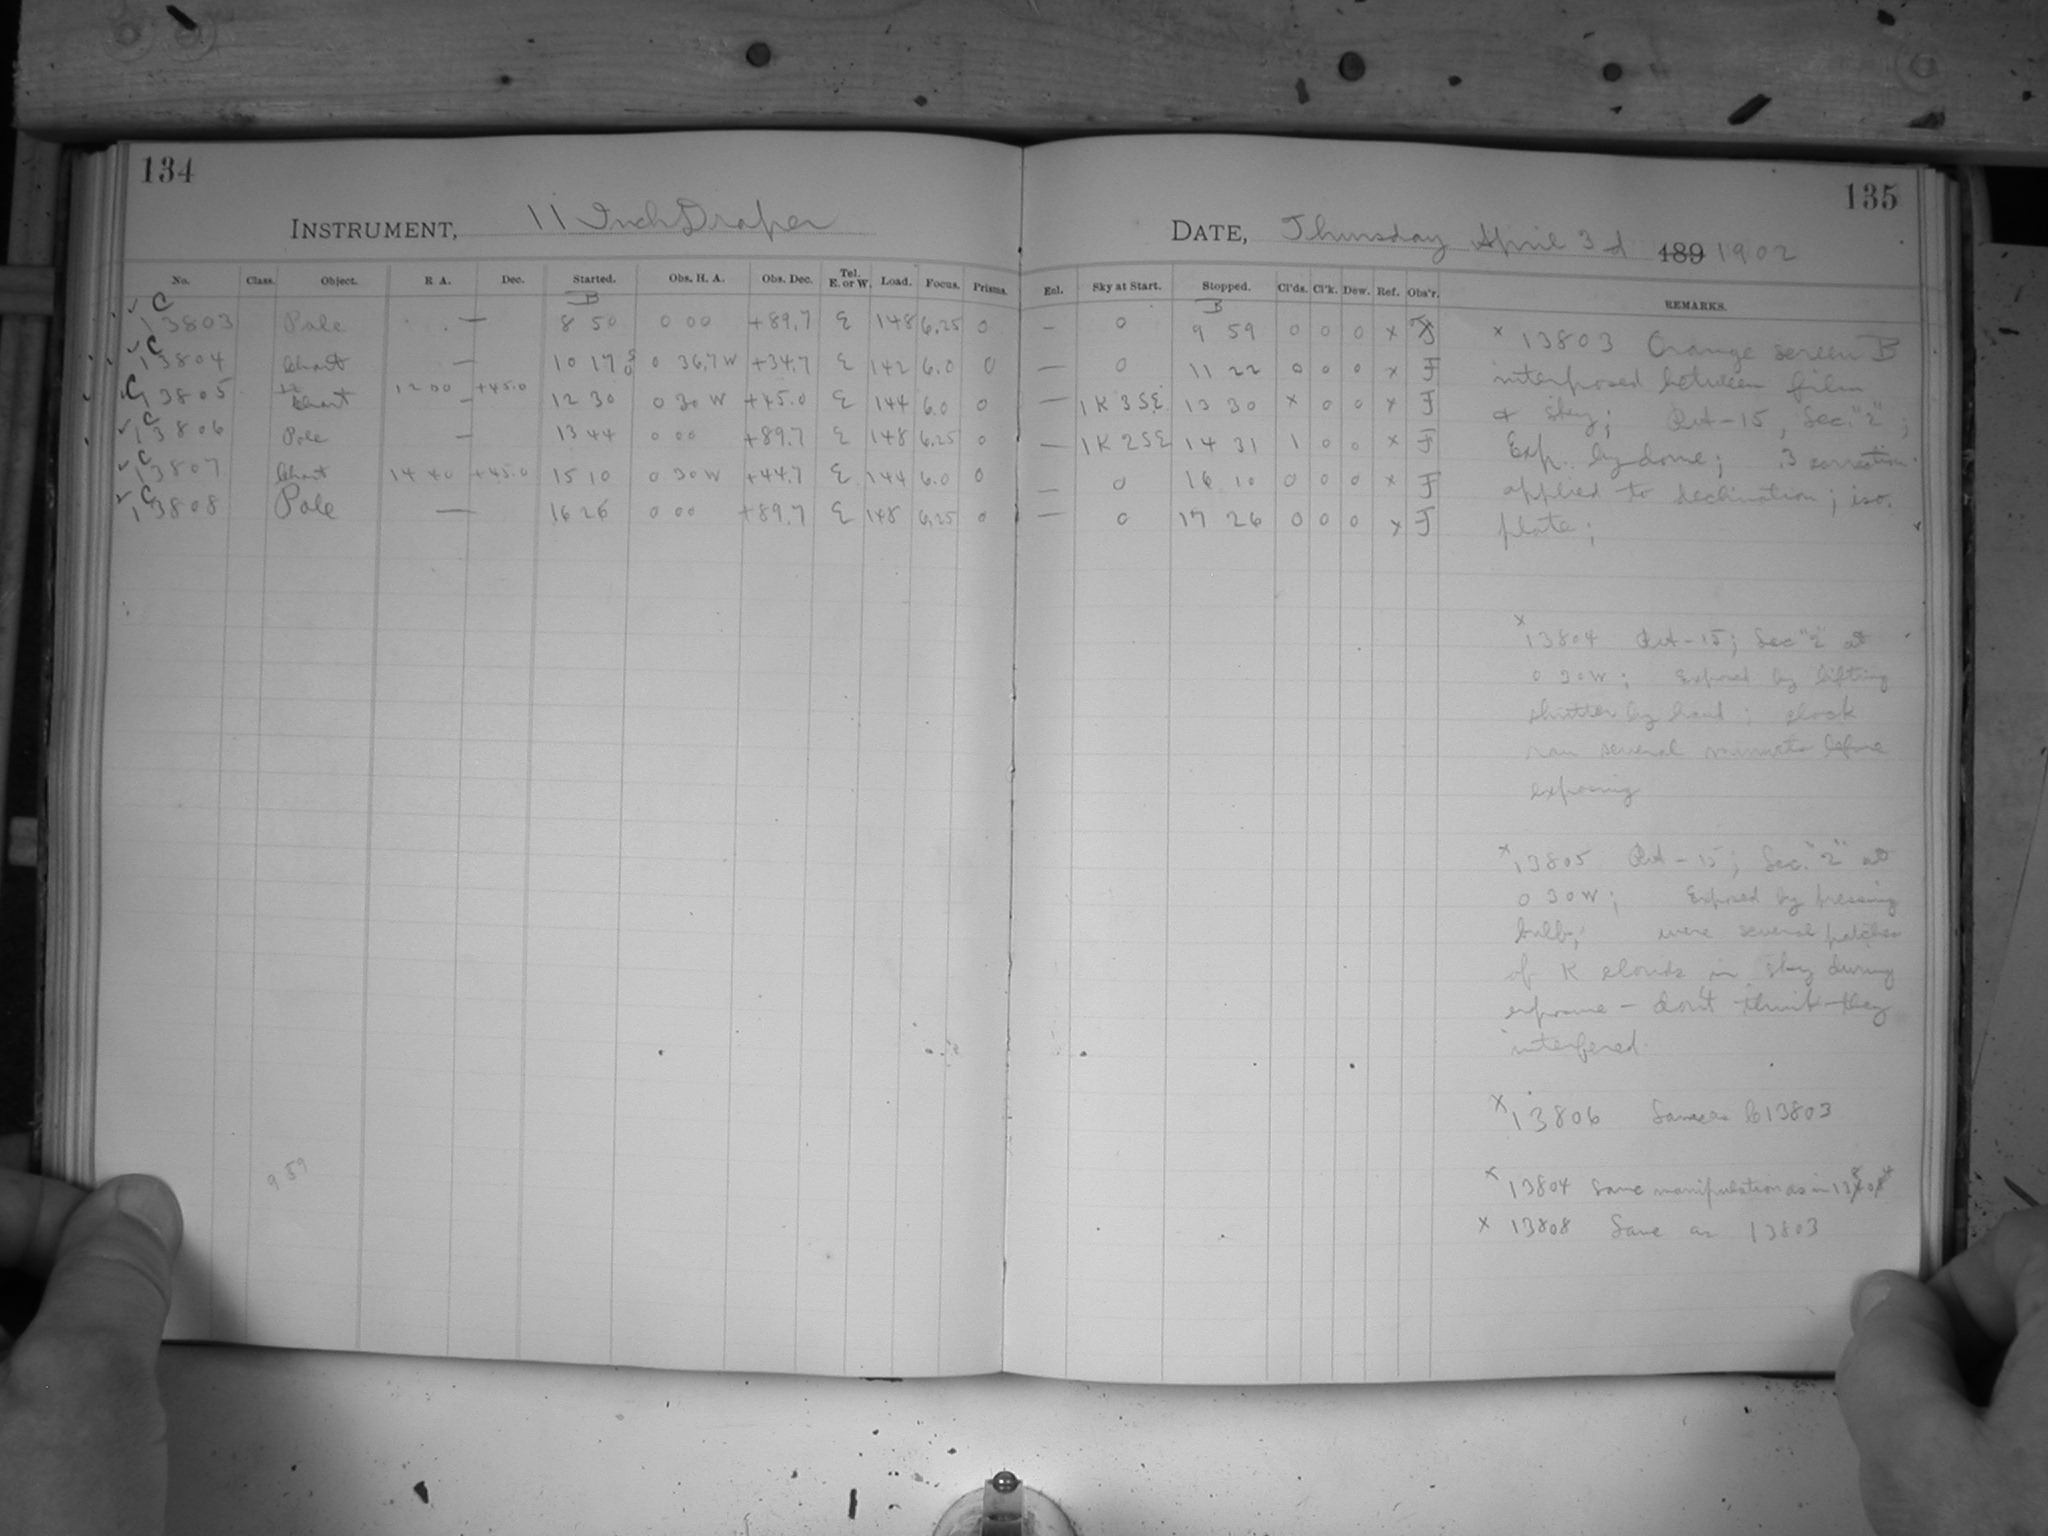 134
INSTRUMENT, 11 Inch Draper
No. Class. Object. R A. Dec. Started. Obs. H. A. Obs. Dec. Tel. E. or W. Load. Focus. Prisms.
B
C 13803 Pole — 8 50 0 00 +89.7 E 148 6.25 0
C 13804 Chart — 10 17 50 0 36.7 W +34.7 E 142 6.0 0
C 13805 Chart 12 00 +45.0 12 30 0 30 W +45.0 E 144 6.0 0
C 13806 Pole — 13 44 0 00 +89.7 E 148 6.25 0
C 13807 Chart 14 40 +45.0 15 10 0 30 W +44.7 E 144 6.0 0
C 13808 Pole — 16 26 0 00 +89.7 E 148 6.25 0
9 59
135
DATE, Thursday April 3d 189 1902
Enl. Sky at Start. Stopped. Cl'ds. Cl'k. Dew. Ref. Obs'r. REMARKS.
B
— 0 9 59 0 0 0 x J
— 0 11 22 0 0 0 x J
— 1 K 3 SE 13 30 x 0 0 x J
— 1 K 2 SE 14 31 1 0 0 x J
— 0 16 10 0 0 0 x J
— 0 17 26 0 0 0 x J
x 13803 Orange screen B
interposed between film
& sky; Ret-15, Sec. "2";
Exp. by dome; .3 correction
applied to declination; iso.
plate;
x 13804 Ret-15; Sec "2" at
0 30 W; Exposed by lifting
shutter by hand; clock
ran several minutes before
exposing
x 13805 Ret-15; Sec. "2" at
0 30 W; Exposed by pressing
bulb; were several patches
of K clouds in sky during
exposure — don't think they
interfered.
x 13806 Same as C13803
x 13804 Same manipulation as in
x 13808 Same as 13803